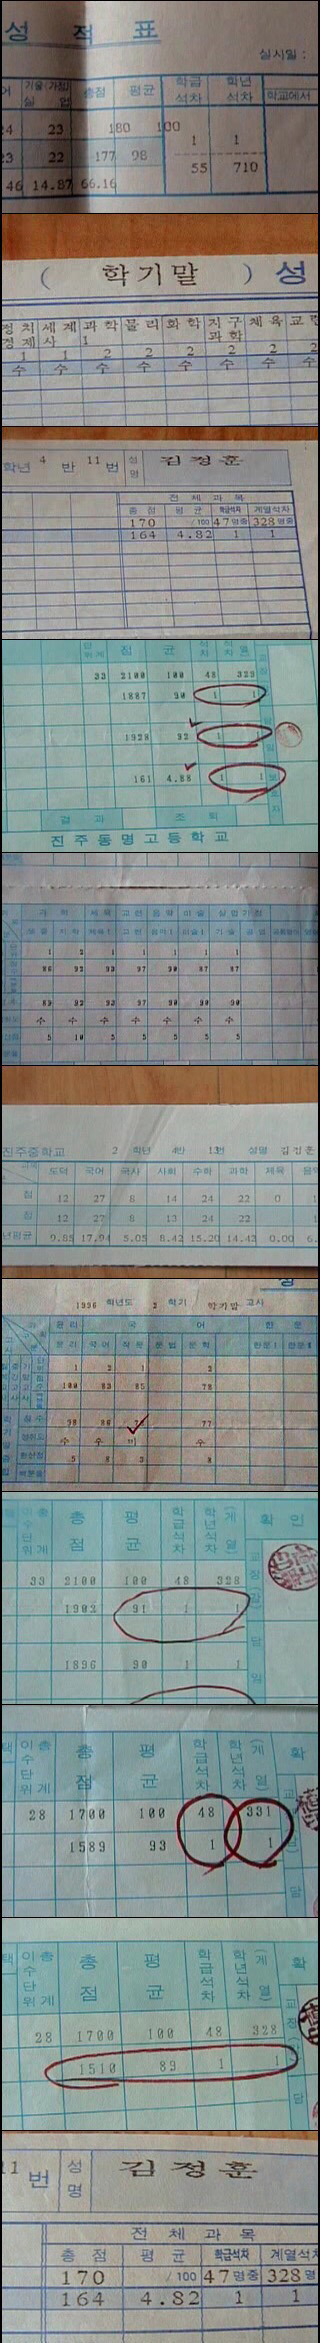 성 적 표
실시일 :
어 기술(가정) 총점 평균 학급 학년
실 업 석차 석차 학교에서
24 23 180 100
1 1
23 22 177 98
55 710
46 14.87 66.16
( 학기말 ) 성
정치 세계 과학 물리 화학 지구 체육 교련
경제 사 1 과학
1 1 2 2 2 2 2 2
수 수 수 수 수 수 수 수
학년 4 반 11 번 성명 김정훈
전 체 과 목
총 점 평 균 학급석차 계열석차
170 /100 47명중 328명중
164 4.82 1 1
점 균
33 2100 100 48 329
1887 90 1 1
1928 92 1 1
161 4.88 1 1
결 과 조 퇴
진주동명고등학교
과 학 체육 교련 음악 미술 실업가정
물리 지학 체육1 교련 음악1 미술1 기술
1 2 1 1 1 1 1
86 92 93 97 90 87 87
89 92 93 97 90 90 90
수 수 수 수 수 수 수
5 10 5 5 5 5 5
진주중학교 2 학년 4반 13번 성명 김정훈
도덕 국어 국사 사회 수학 과학 체육 음악
점 12 27 8 14 24 22 0
점 12 27 8 13 24 22
년평균 9.85 17.94 5.05 8.42 15.20 14.43 0.00 6.
1996 학년도 2 학기 학기말 고사
윤리 국 어 한 문
윤리 국어 작문 문법 문학 한문Ⅰ 한문Ⅱ
1 2 1 2
100 83 85 78
98 86 77
수 우 미 우
5 8 3 8
총 평 학급석차 학년석차 (계열) 확 인
점 균
33 2100 100 48 328
1903 91 1 1
1896 90 1 1
택 이수단위 총계 총 평 학급석차 학년석차 (계열) 확
점 균
28 1700 100 48 331
1589 93 1 1
택 이수단위 총계 총 평 학급석차 학년석차 (계열) 확
점 균
28 1700 100 48 328
1510 89 1 1
11 번 성명 김정훈
전 체 과 목
총 점 평 균 학급석차 계열석차
170 /100 47명중 328명
164 4.82 1 1